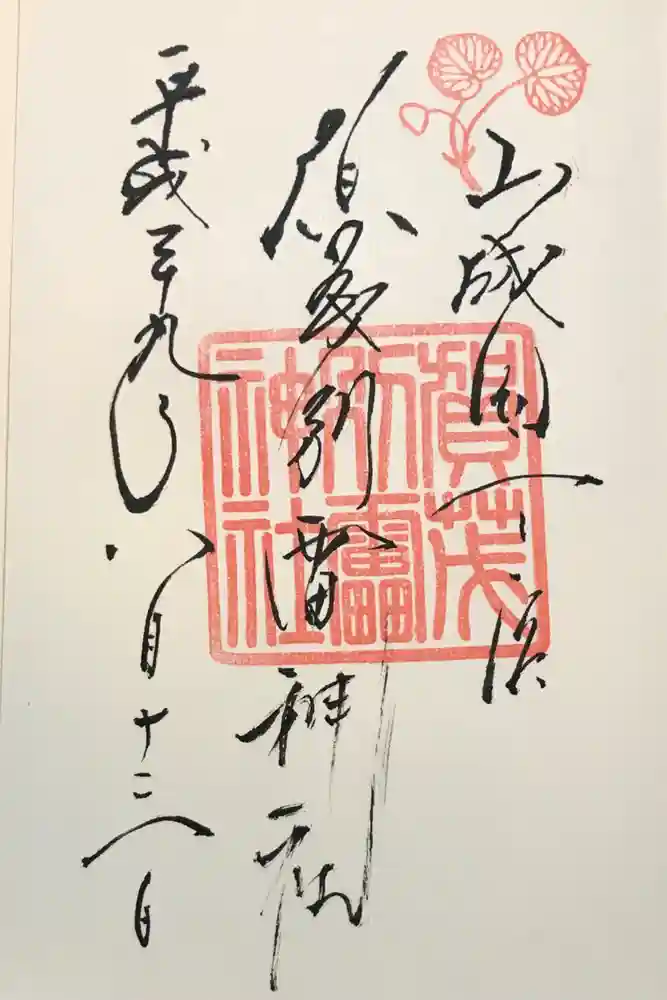 山城国一之宮
賀茂別雷神社
平成二十九年
八月十三日
賀茂
別雷
神社